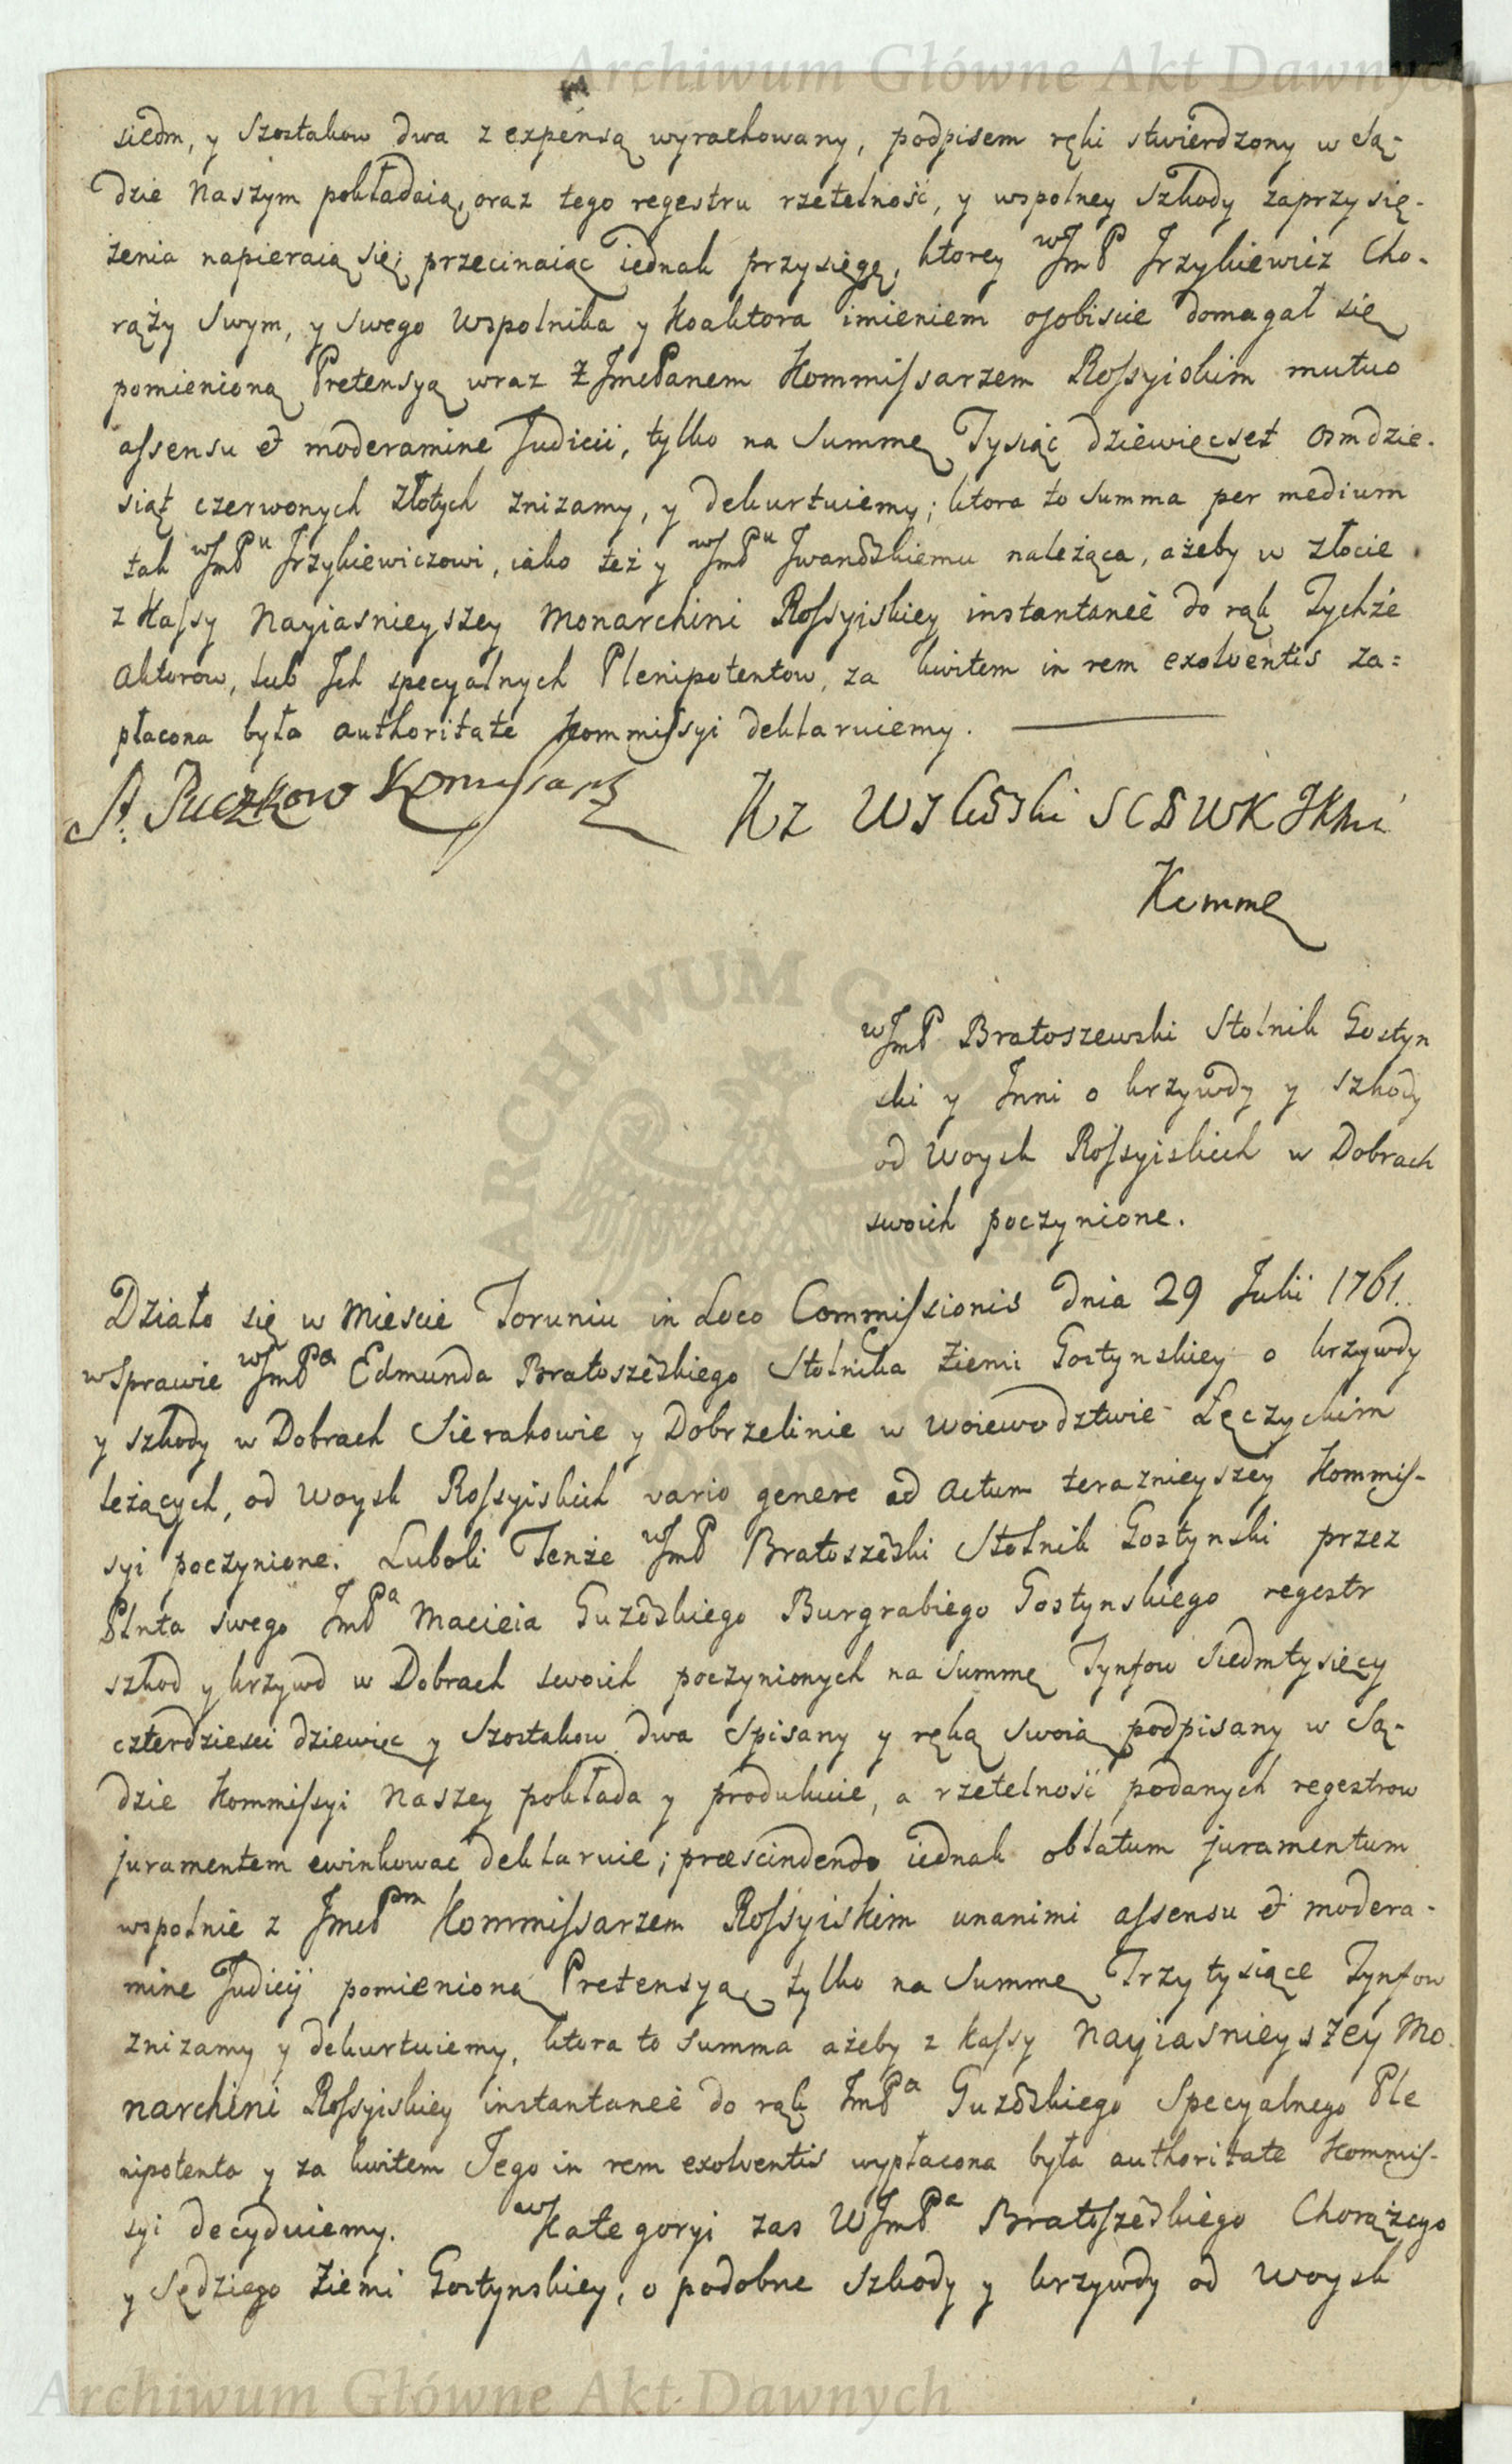 Archiwum Główne Akt Dawnych
siedm, y Szostakow dwa z expensą wyrachowany, podpisem ręki stwierdzony w Są-
dzie Naszym pokładaią, oraz tego regestru rzetelność, y wspolney Szkody zaprzysię-
żenia napieraią się; przecinaiąc iednak przysięgę, ktorey WJmP Jrzykiewicz Cho-
rąży Swym, y Swego Wspolnika y Koaktora imieniem osobiscie domagał się
pomienioną Pretensyą wraz z JmcPanem Kommissarzem Rossyiskim mutuo
assensu et moderamine Judicii, tylko na Summę Tysiąc dziewięcset osmdzie-
siąt czerwonych złotych zniżamy, y dekurtuiemy; ktora to Summa per medium
tak WJmPu Jrzykiewiczowi, iako też y WJmPu Jwanõskiemu należąca, ażeby w złocie
z Kassy Nayiasnieyszey Monarchini Rossyiskiey instantaneè do rąk Tychże
Aktorow, lub Jch specyalnych Plenipotentow, za kwitem in rem exolventis za=
płacona była authoritate Kommissyi deklaruiemy.
A. Puczkow Komissarz
SCDWK JKMci
Kommę
WJmP Bratoszewski Stolnik Gostyn
ski y Jnni o krzywdy y szkody
od Woysk Rossyiskich w Dobrach
swoich poczynione.
Działo się w Miescie Toruniu in Loco Commissionis dnia 29 Julii 1761.
w Sprawie WJmPa Edmunda Bratoszẽskiego Stolnika Ziemi Gostynskiey o krzywdy
y szkody w Dobrach Sierakowie y Dobrzelinie w Woiewodztwie Łęczyckim
leżących, od Woysk Rossyiskich vario genere ad actum teraznieyszey Kommis-
syi poczynione. Luboli Tenże WJmP Bratoszẽski Stolnik Gostynski przez
Plnta swego JmPa Macieia Guzõskiego Burgrabiego Gostynskiego regestr
szkod y krzywd w Dobrach swoich poczynionych na Summę Tynfow Siedmtysięcy
czterdziesci dziewięc y Szostakow dwa Spisany y ręką Swoią podpisany w Są-
dzie Kommissyi Naszey pokłada y produkuie, a rzetelność podanych regestrow
juramentem ewinkowac deklaruie; præscindendo iednak oblatum juramentum
wspolnie z JmcPm Kommissarzem Rossyiskim unanimi assensu et modera-
mine Judicij pomienioną Pretensyą, tylko na Summę Trzy tysiące Tynfow
zniżamy y dekurtuiemy, ktora to Summa ażeby z Kassy Nayiasnieyszey Mo
narchini Rossyiskiey instantaneè do rąk JmPa Guzõskiego Specyalnego Ple
nipotenta y za kwitem Jego in rem exolventis wypłacona była authoritate Kommis-
syi decyduiemy. W Kategoryi zas WJmPa Bratoszẽskiego Chorążego
y Sędziego Ziemi Gostynskiey, o podobne Szkody y krzywdy od Woysk
Archiwum Główne Akt Dawnych